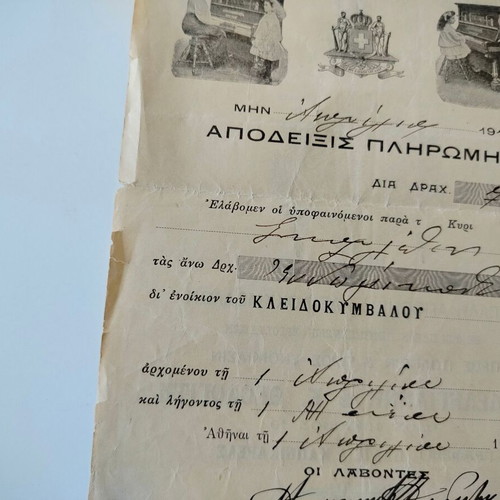 ΜΗΝ Ἀπρίλιος 191
ΑΠΟΔΕΙΞΙΣ ΠΛΗΡΩΜΗ
ΔΙΑ ΔΡΑΧ.
Ἐλάβομεν οἱ ὑποφαινόμενοι παρὰ τ Κυρι
τὰς ἄνω Δρχ.
δι' ἐνοίκιον τοῦ ΚΛΕΙΔΟΚΥΜΒΑΛΟΥ
ἀρχομένου τῇ 1 Ἀπριλίου
καὶ λήγοντος τῇ 1 Μαΐου
Ἀθῆναι τῇ 1 Ἀπριλίου 1
ΟΙ ΛΑΒΟΝΤΕΣ